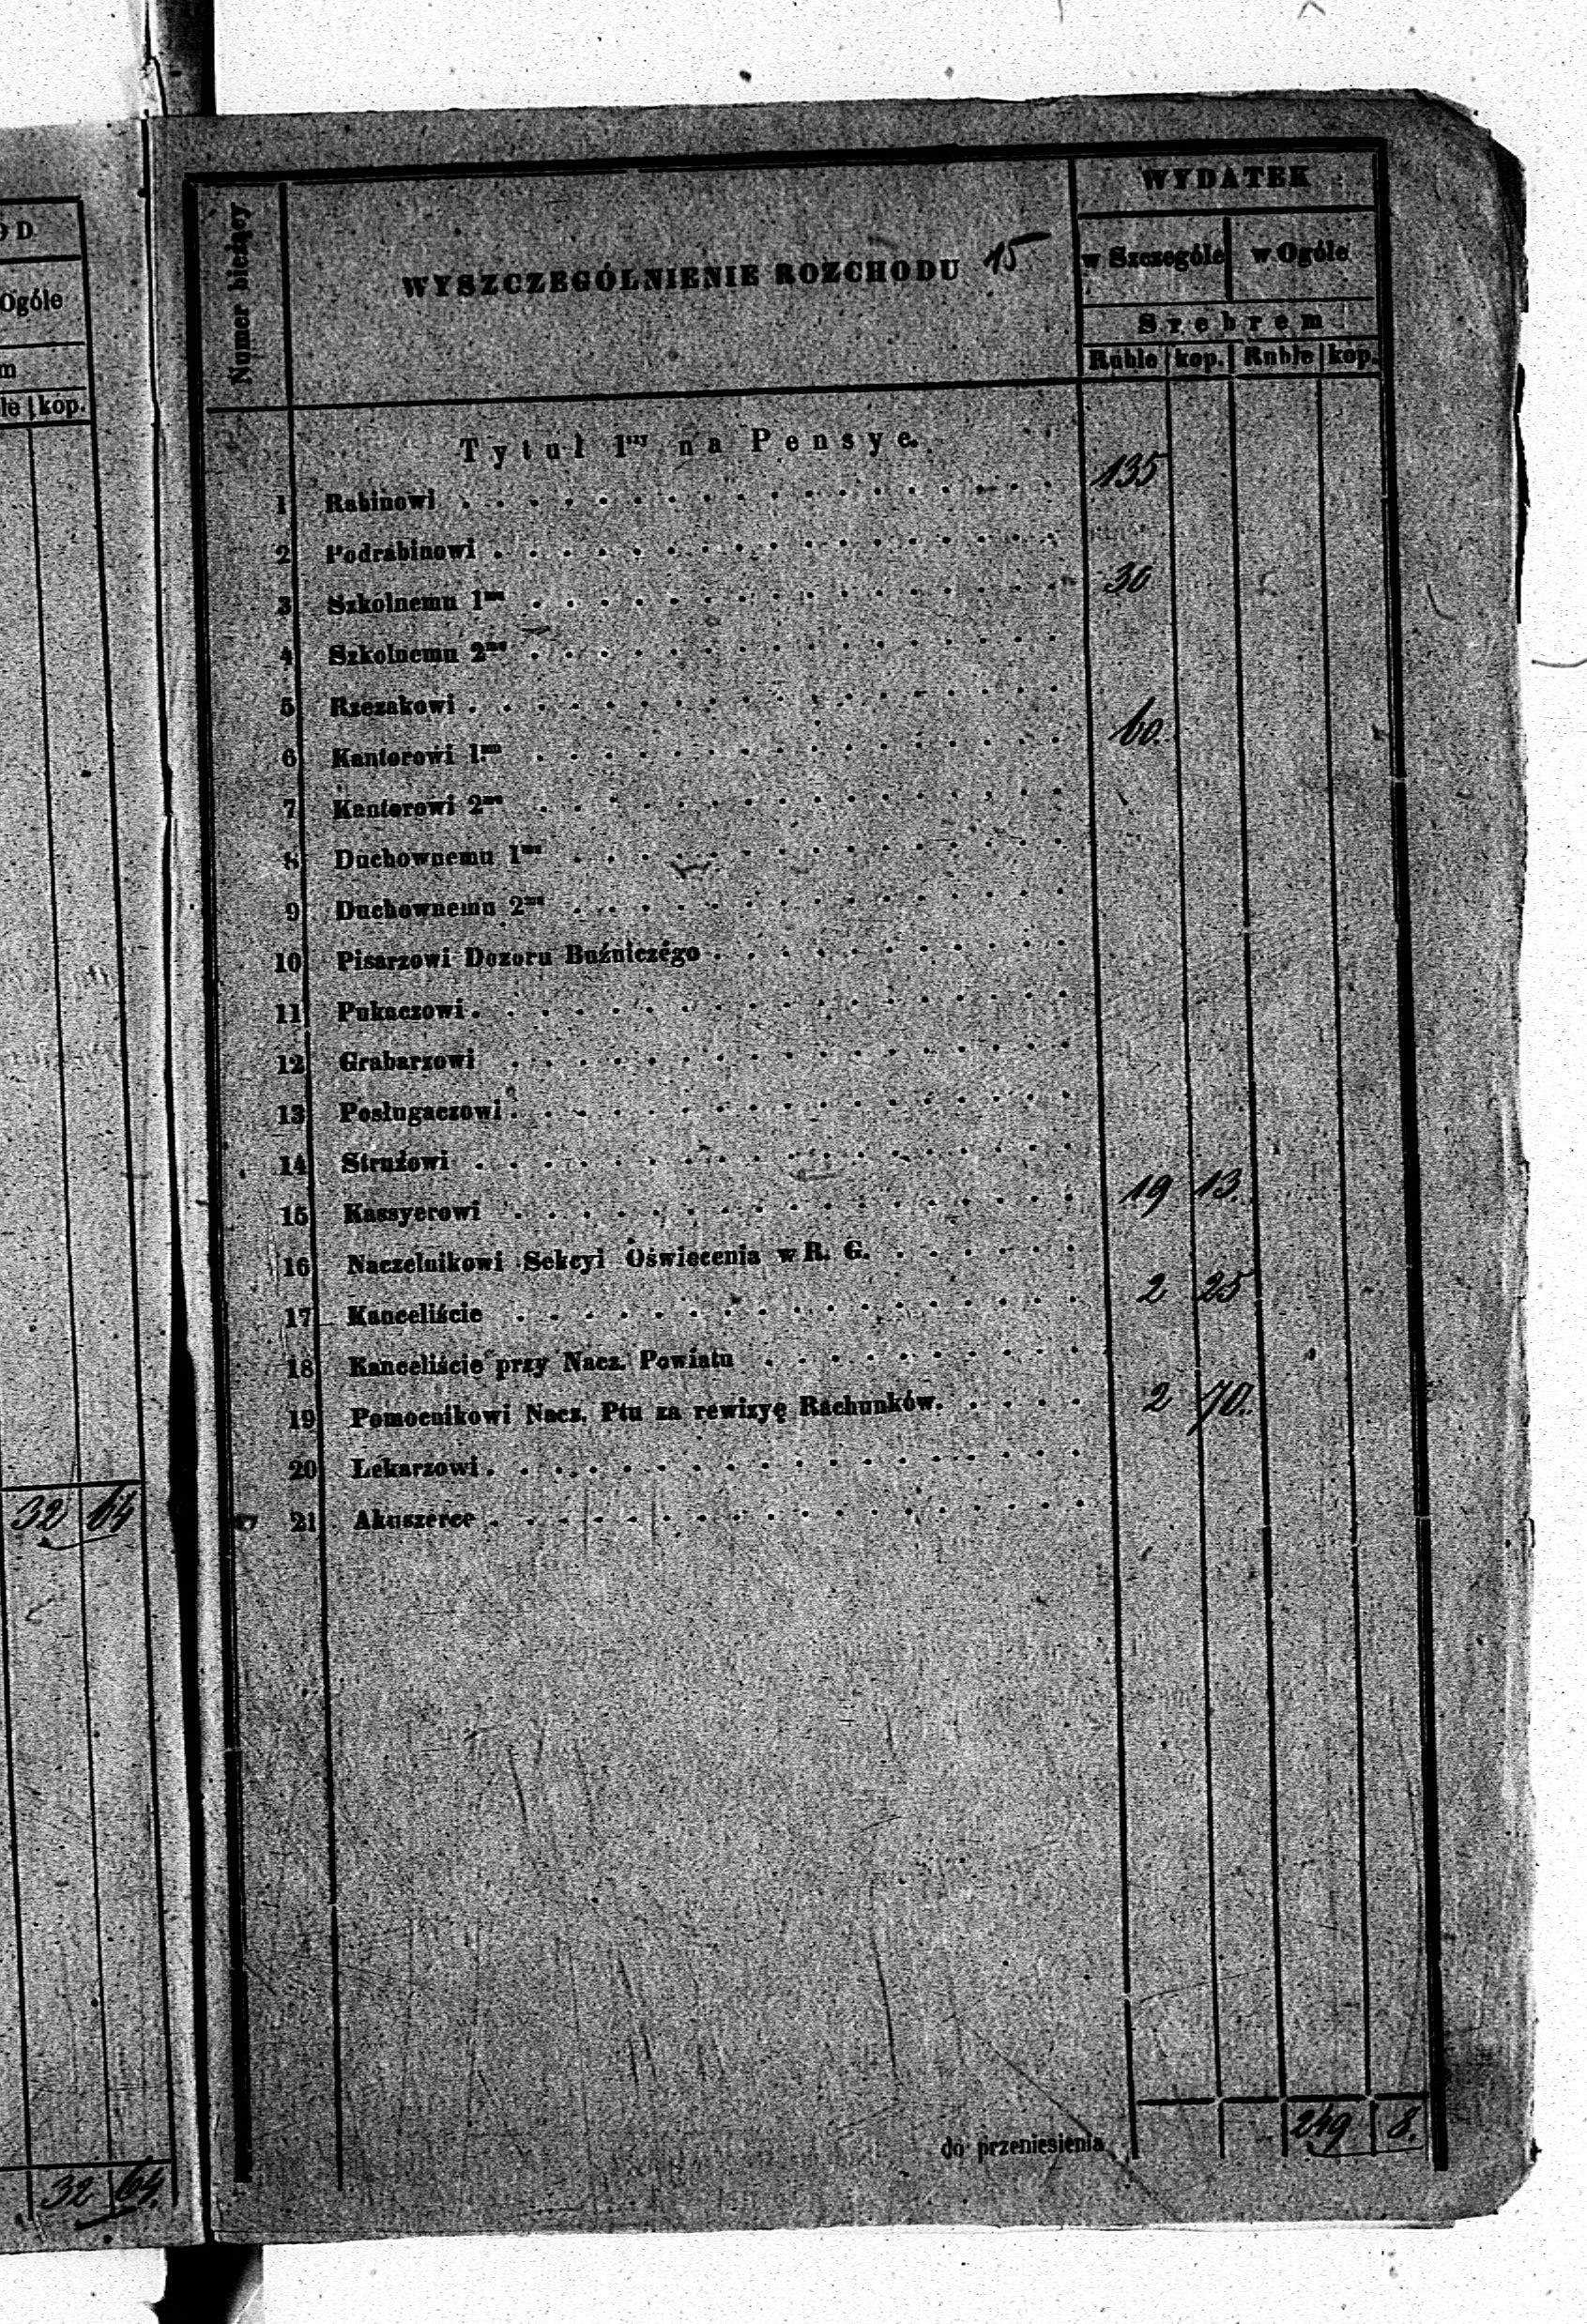 O D
Ogóle
m
le kop.
32 64
32 64.
Numer bieżący
WYSZCZEGÓLNIENIE ROZCHODU 15
WYDATEK
w Szczególe w Ogóle
Srebrem
Ruble kop. Ruble kop.
Tytuł 1ny na Pensye.
1 Rabinowi 135
2 Podrabinowi
3 Szkolnemu 1mu 30
4 Szkolnemu 2mu
5 Rzezakowi
6 Kantorowi 1mu 60.
7 Kantorowi 2mu
8 Duchownemu 1mu
9 Duchownemu 2mu
10 Pisarzowi Dozoru Bużniczégo
11 Pukaczowi
12 Grabarzowi
13 Posługaczowi
14 Stružowi
15 Kassyerowi 19 13.
16 Naczelnikowi Sekcyi Oświecenia w R. G.
17 Kanceliście 2 25
18 Kanceliście przy Nacz. Powiatu
19 Pomocnikowi Nacz. Ptu za rewizyę Rachunków. 2 70.
20 Lekarzowi
21 Akuszerce
do przeniesienia 249 8.